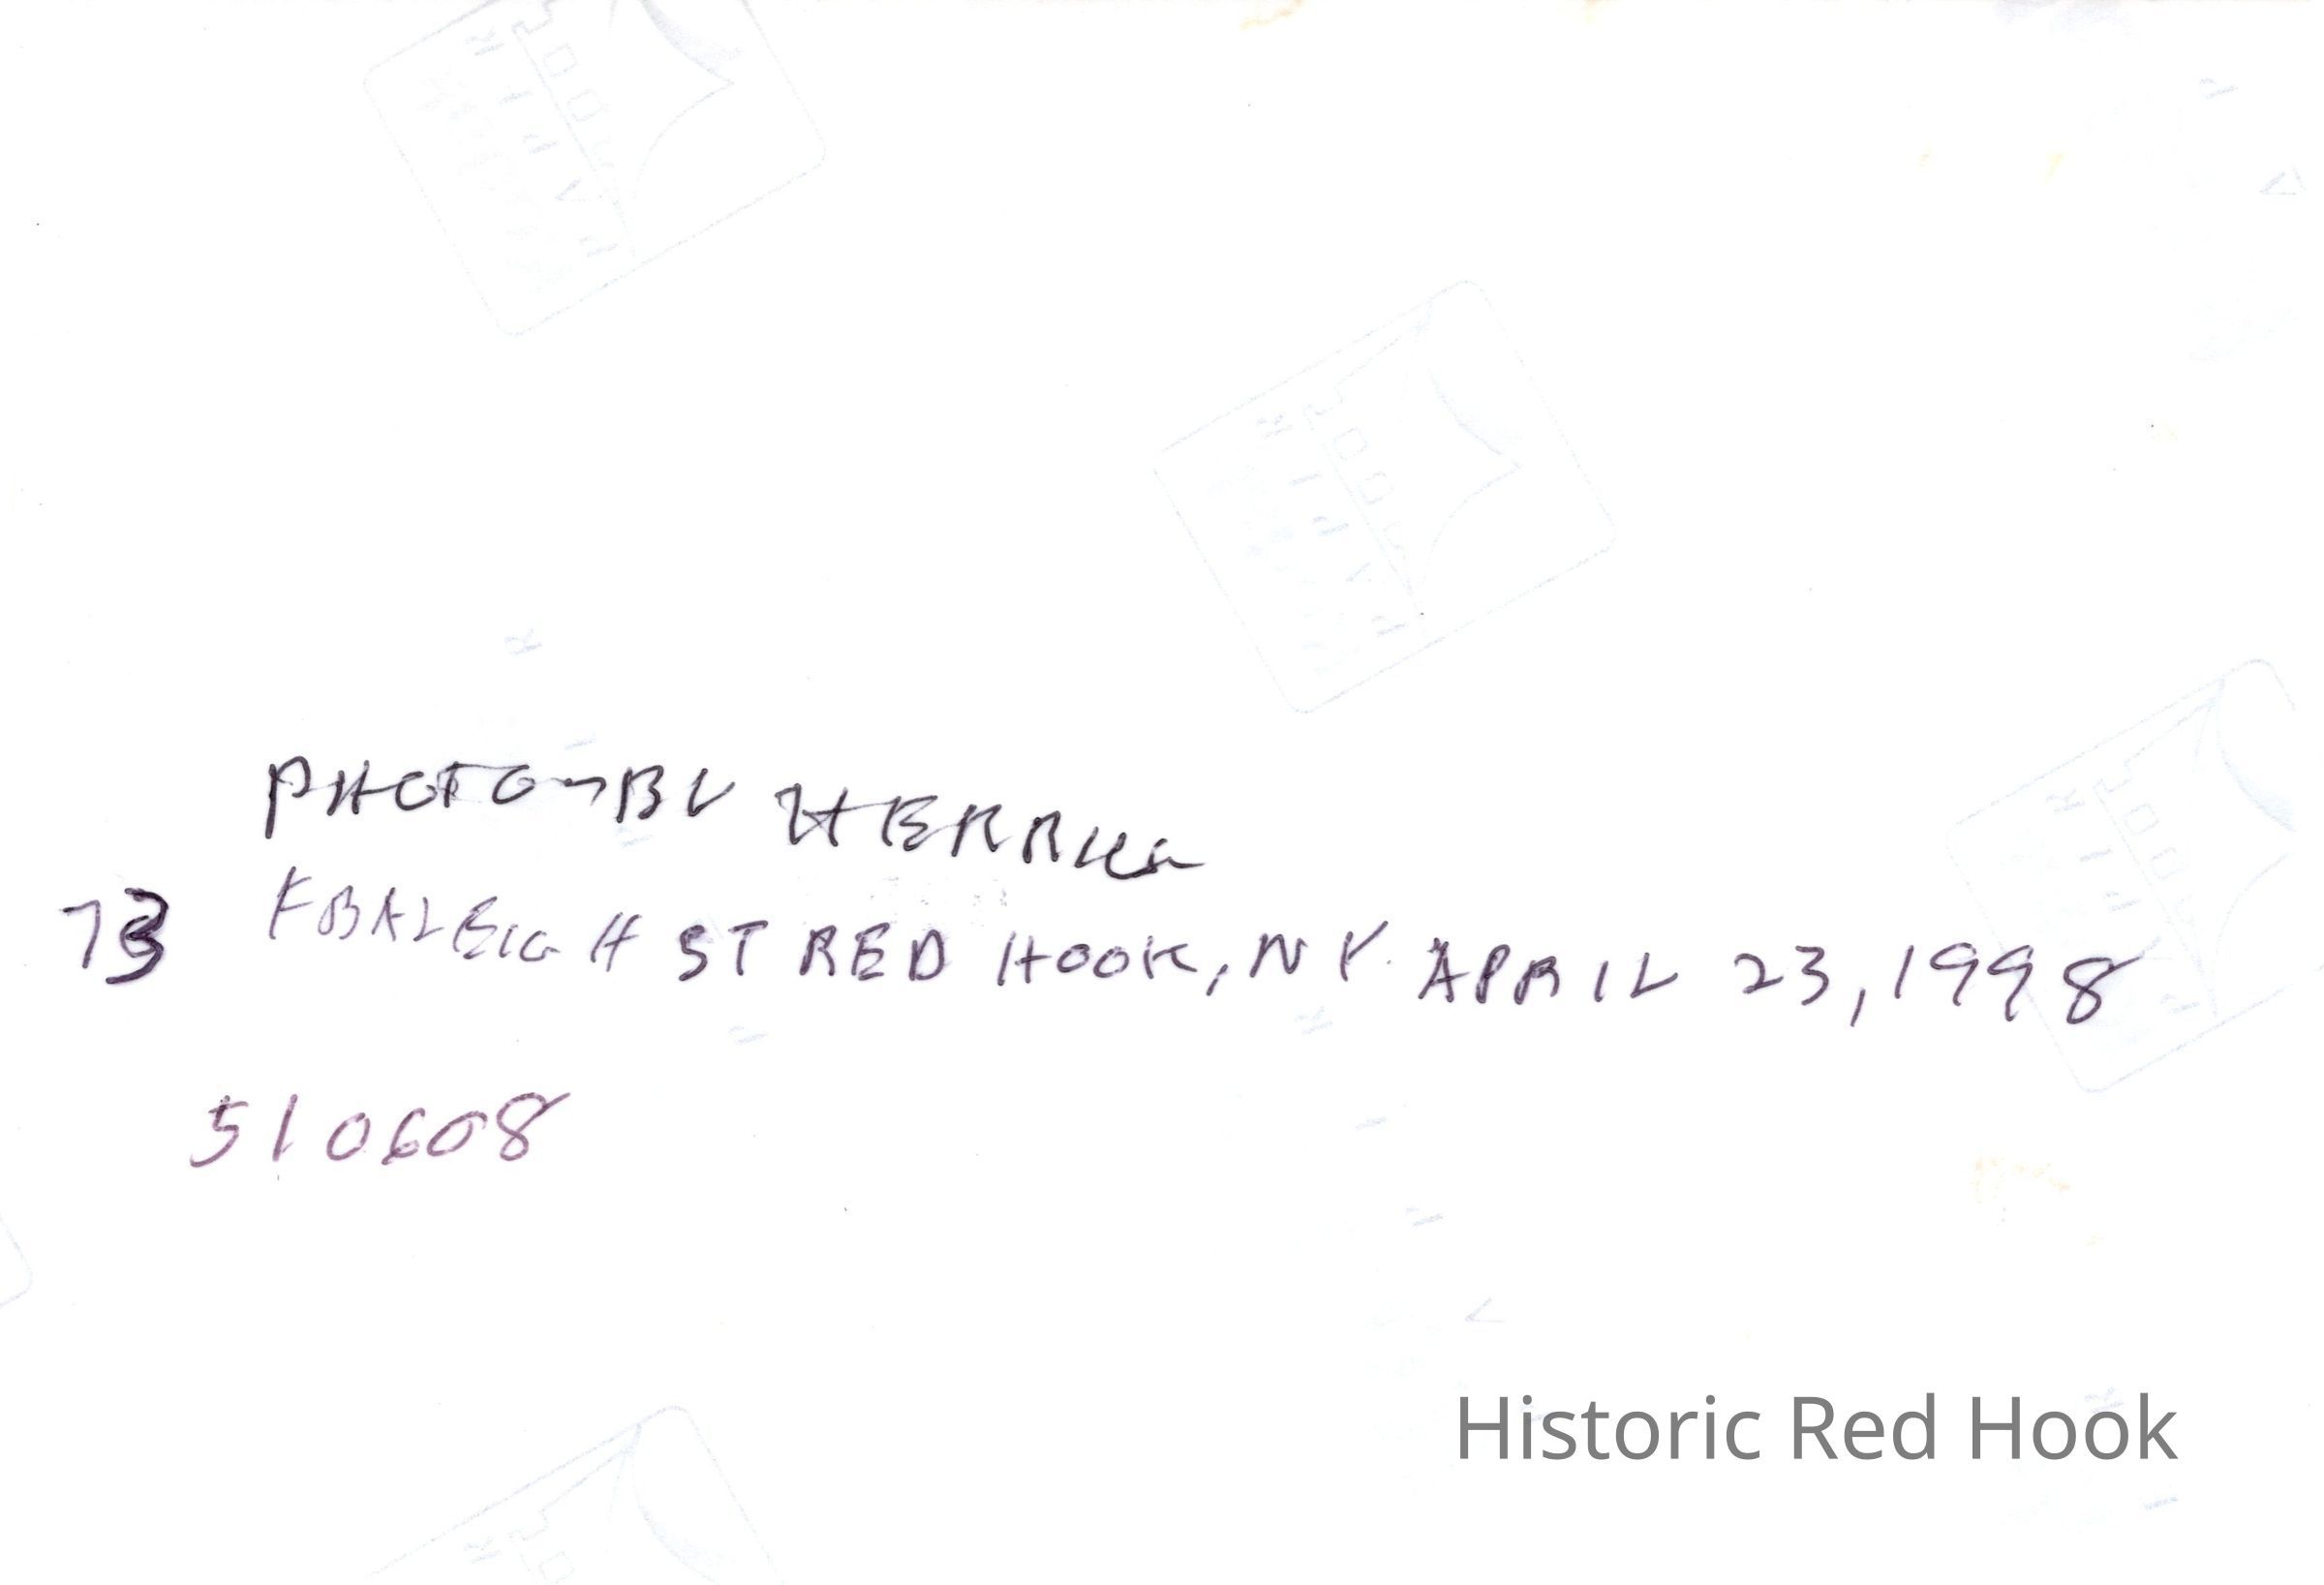 PHOTO BY HERRICK
73 FRALEIGH ST RED HOOK, NY. APRIL 23, 1998
510608
Historic Red Hook